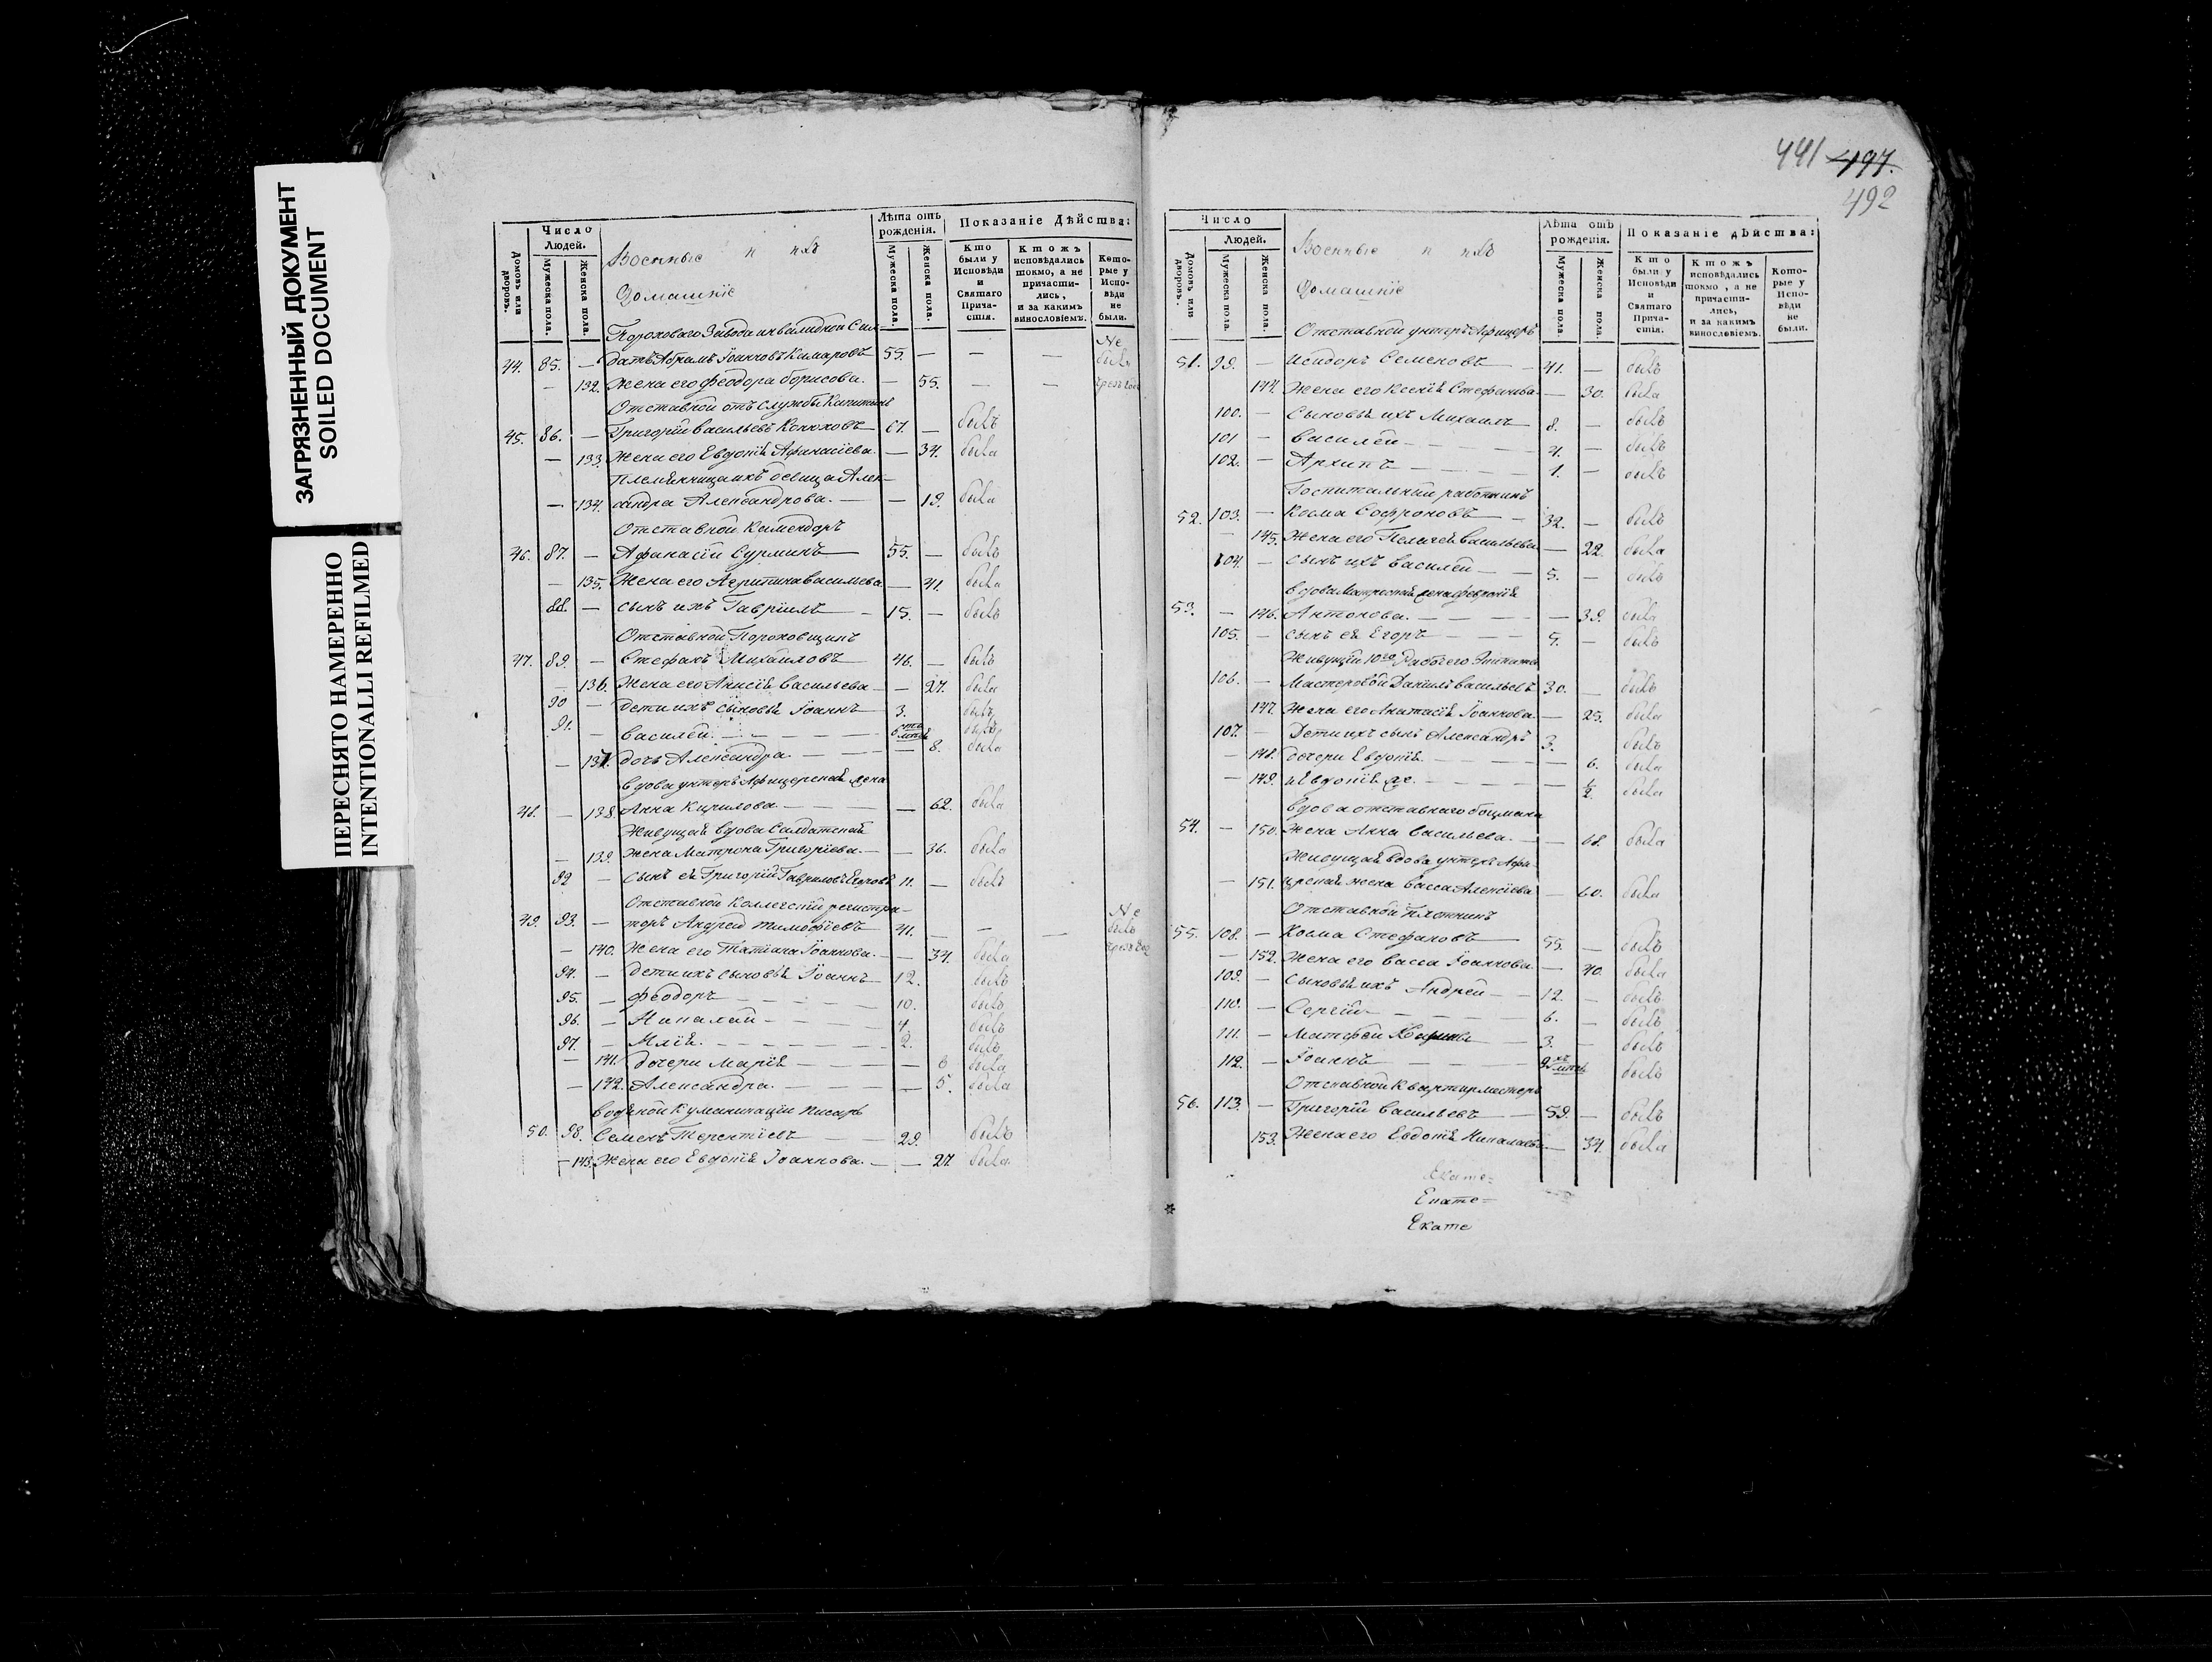 ЗАГРЯЗНЕННЫЙ ДОКУМЕНТ
SOILED DOCUMENT
ПЕРЕСНЯТО НАМЕРЕННО
INTENTIONALLI REFILMED
Число
Людей.
Домовъ или дворовъ.
Мужеска пола.
Женска пола.
Военные и ихъ
Домашніе
Лѣта отъ рожденія.
Мужеска пола.
Женска пола.
Показаніе Дѣйства:
Кто были у Исповѣди и Святаго Причастія.
Ктожъ исповѣдались токмо, а не причастились, и за какимъ винословіемъ.
Которые у Исповѣди не были.
Пороховаго Завода инвалидной Сол- Не
44. 85. — датъ Абрамъ Іоанновъ Камаровъ 55. — —
— 132. Жена его Феодора Борисова. — 55. — —
Отставной отъ Службы
45. 86. — Григорій Васильевъ Конюховъ 67. — былъ
— 133. Жена его Евдокія Афанасіева. — 34. была
Племянница ихъ девица Алек-
— 134. сандра Александрова. — — 19. была
Отставной Камендоръ
46. 87. — Афанасій Сурминъ 55. — былъ
— 135. Жена его Агрипина Васильева. — 41. была
88. — сынъ ихъ Гавріилъ 15. — былъ
Отставной Пороховщикъ
47. 89. — Стефанъ Михайловъ 46. — былъ
— 136. Жена его Анисія Васильева — — 27. была
90 — Дети ихъ сыновья Іоаннъ 3. былъ
91. — Василей. — — — 6 былъ
— 137. дочь Александра — — — — 8. была
вдова унтеръ Афицерская жена
48. — 138. Анна Кирилова. — — — — 62. была
Живущая вдова Салдатская
— 139. Жена Матрона Григорьева. — — 36. была
92 — Сынъ ея Григорій Гавриловъ Егоровъ 11. — былъ
Отставной Коллегскій регистра- Не
49. 93. — торъ Андрей Тимофѣевъ 41. — — — былъ
— 140. Жена его Татіана Іоаннова. — — 34. была
94. — Дети ихъ сыновья Іоаннъ 12. былъ
95. — Феодоръ — — — 10. былъ
96. — Николай — — — 4. былъ
97. — Илія. — — — 2. былъ
— 141. дочери Марія — — — — 6 была
— 142. Александра. — — — — 5. была
водяной Куманикаціи писарь
50. 98. Семенъ Терентіевъ 29. былъ
— 143. Жена его Евдокія Іоаннова. — — 27. была
441 497.
492
Число
Людей.
Домовъ или дворовъ.
Мужеска пола.
Женска пола.
Военные и ихъ
Домашніе
Лѣта отъ рожденія.
Мужеска пола.
Женска пола.
Показаніе дѣйства:
Кто были у Исповѣди и Святаго Причастія.
Ктожъ исповѣдались токмо, а не причастились, и за какимъ винословіемъ.
Которые у Исповѣди не были.
Отставной унтеръ Афицеръ
51. 99. — Исидоръ Семеновъ 41. — былъ
144. Жена его Ксенія Стефанова — 30. была
100. — Сыновья ихъ Михаилъ 8. — былъ
101 — Василей — — 4. — былъ
102. — Архипъ — — — 1. — былъ
Госпитальный работникъ
52. 103. — Косма Софроновъ 32. — былъ
— 145. Жена его Пелагея Васильева — 22. была
104. — Сынъ ихъ Василей — — 5. — былъ
вдова Матроская жена Феврония
53. — 146. Антонова. — — — — 39. была
105. — Сынъ ея Егоръ — — — 5. — былъ
Живущій 10го Рабочего Экипажа
106. — Мастеровой Даніилъ Васильевъ 30. — былъ
147. Жена его Анастасія Іоаннова. — 25. была
107. — Дети ихъ сынъ Александръ 3. былъ
— 148. дочери Евдокія — — — — 6. была
— 149. и Евдокія же. — — — 1/2. была
вдова отставнаго боцмана
54. — 150. Жена Анна Васильева. — — 68. была
Живущая вдова унтеръ Афи-
— 151. церская жена Васса Алексіева — 60. была
Отставной Плотникъ
55. 108. — Косма Стефановъ 55. — былъ
— 152. Жена его Васса Іоаннова. — 40. была
109. — Сыновья ихъ Андрей — — 12. — былъ
110. — Сергій — — — 6. — былъ
111. — Матфей — 3. — былъ
112. — Іоаннъ былъ
Отставной Квартирмистеръ
56. 113. — Григорій Васильевъ — 59. — былъ
153. Жена его Евдокія Николаева — 34. была
Екате=
Екате=
Екате